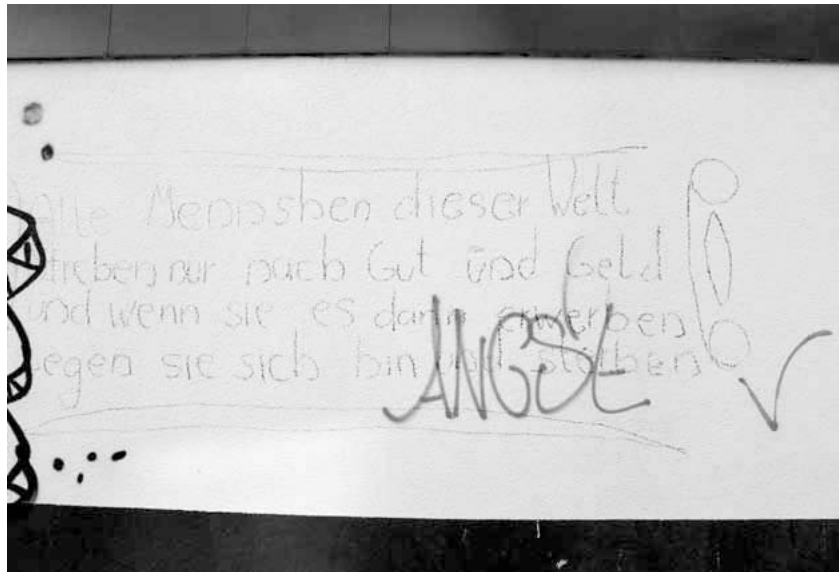 Alle Mennshen dieser Welt
treben nur nach Gut ünd Geld
und wenn sie es dann erwerben
egen sie sich hin und
ANGST